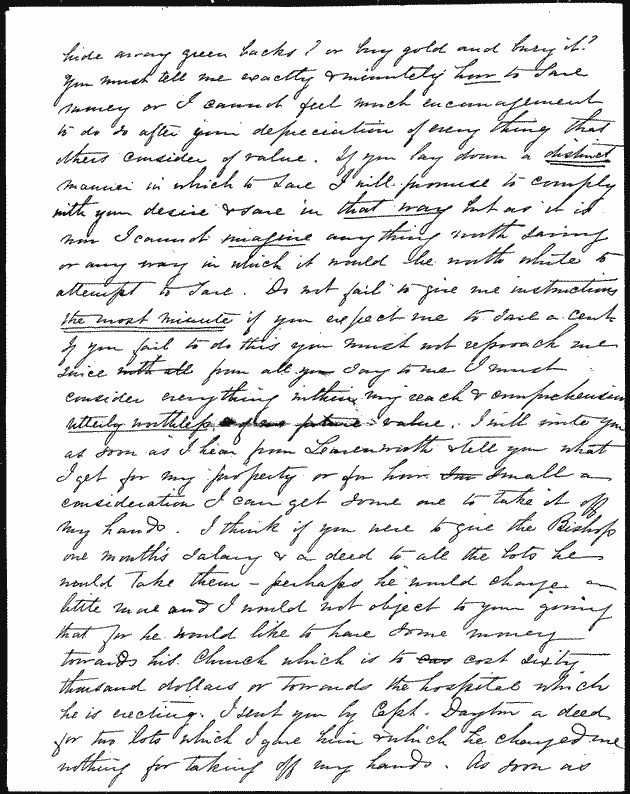 hide away green backs? or buy gold and bury it?
You must tell me exactly & minutely how to save
money or I cannot feel much encouragement
to do so after your depreciation of every thing that
others consider of value. If you lay down a distinct
manner in which to save I will promise to comply
with your desire & save in that way but as it is
now I cannot imagine anything worth saving
or any way in which it would be worth while to
attempt to save. Do not fail to give me instructions
the most minute if you expect me to save a cent
If you fail to do this you must not reproach me
since with all from all you say to me I must
consider everything within my reach & comprehension
utterly worthless of no future value. I will write you
as soon as I hear from Leavenworth & tell you what
I get for my property or for how small a
consideration I can get some one to take it off
my hands. I think if you were to give the Bishop
one month's salary & a deed to all the lots he
would take them – perhaps he would charge a
little more and I would not object to your giving
that for he would like to have some money
towards his Church which is to cos cost sixty
thousand dollars or towards the hospital which
he is erecting. I sent you by Capt. Dayton a deed
for two lots which I gave him & which he charged me
nothing for taking off my hands. As soon as